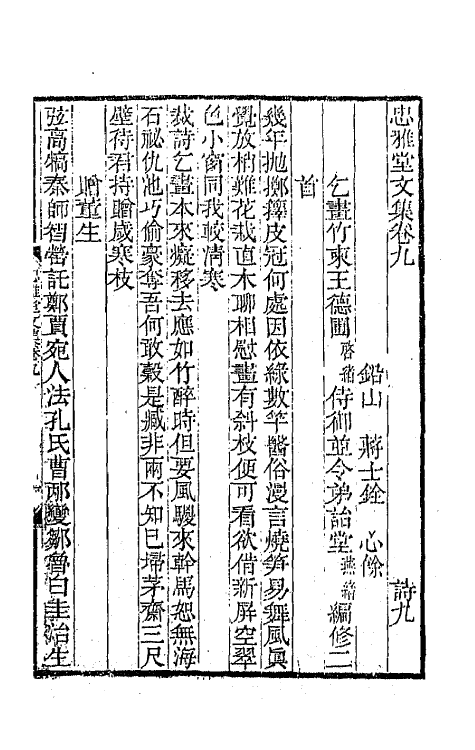 忠雅堂文集卷九
鉛山 蔣士銓 心餘 詩九
乞畫竹柬王德圃啓緒侍御並令弟詒堂燕緒編修二
首
幾年拋擲籜皮冠何處因依綠數竿醫俗漫言燒笋易舞風眞
覺放梢難花栽直木聊相慰畫有斜枝便可看欲借新屏空翠
色小窗同我較清寒
裁詩乞畫本來癡移去應如竹醉時但要風騣來幹馬恕無海
石祕仇池巧偷豪奪吾何敢穀是臧非兩不知已埽茅齋三尺
壁待君持贈歲寒枝
贈董生
弦高犒秦師智罃託鄭賈宛人法孔氏曹邴變鄒魯白圭治生